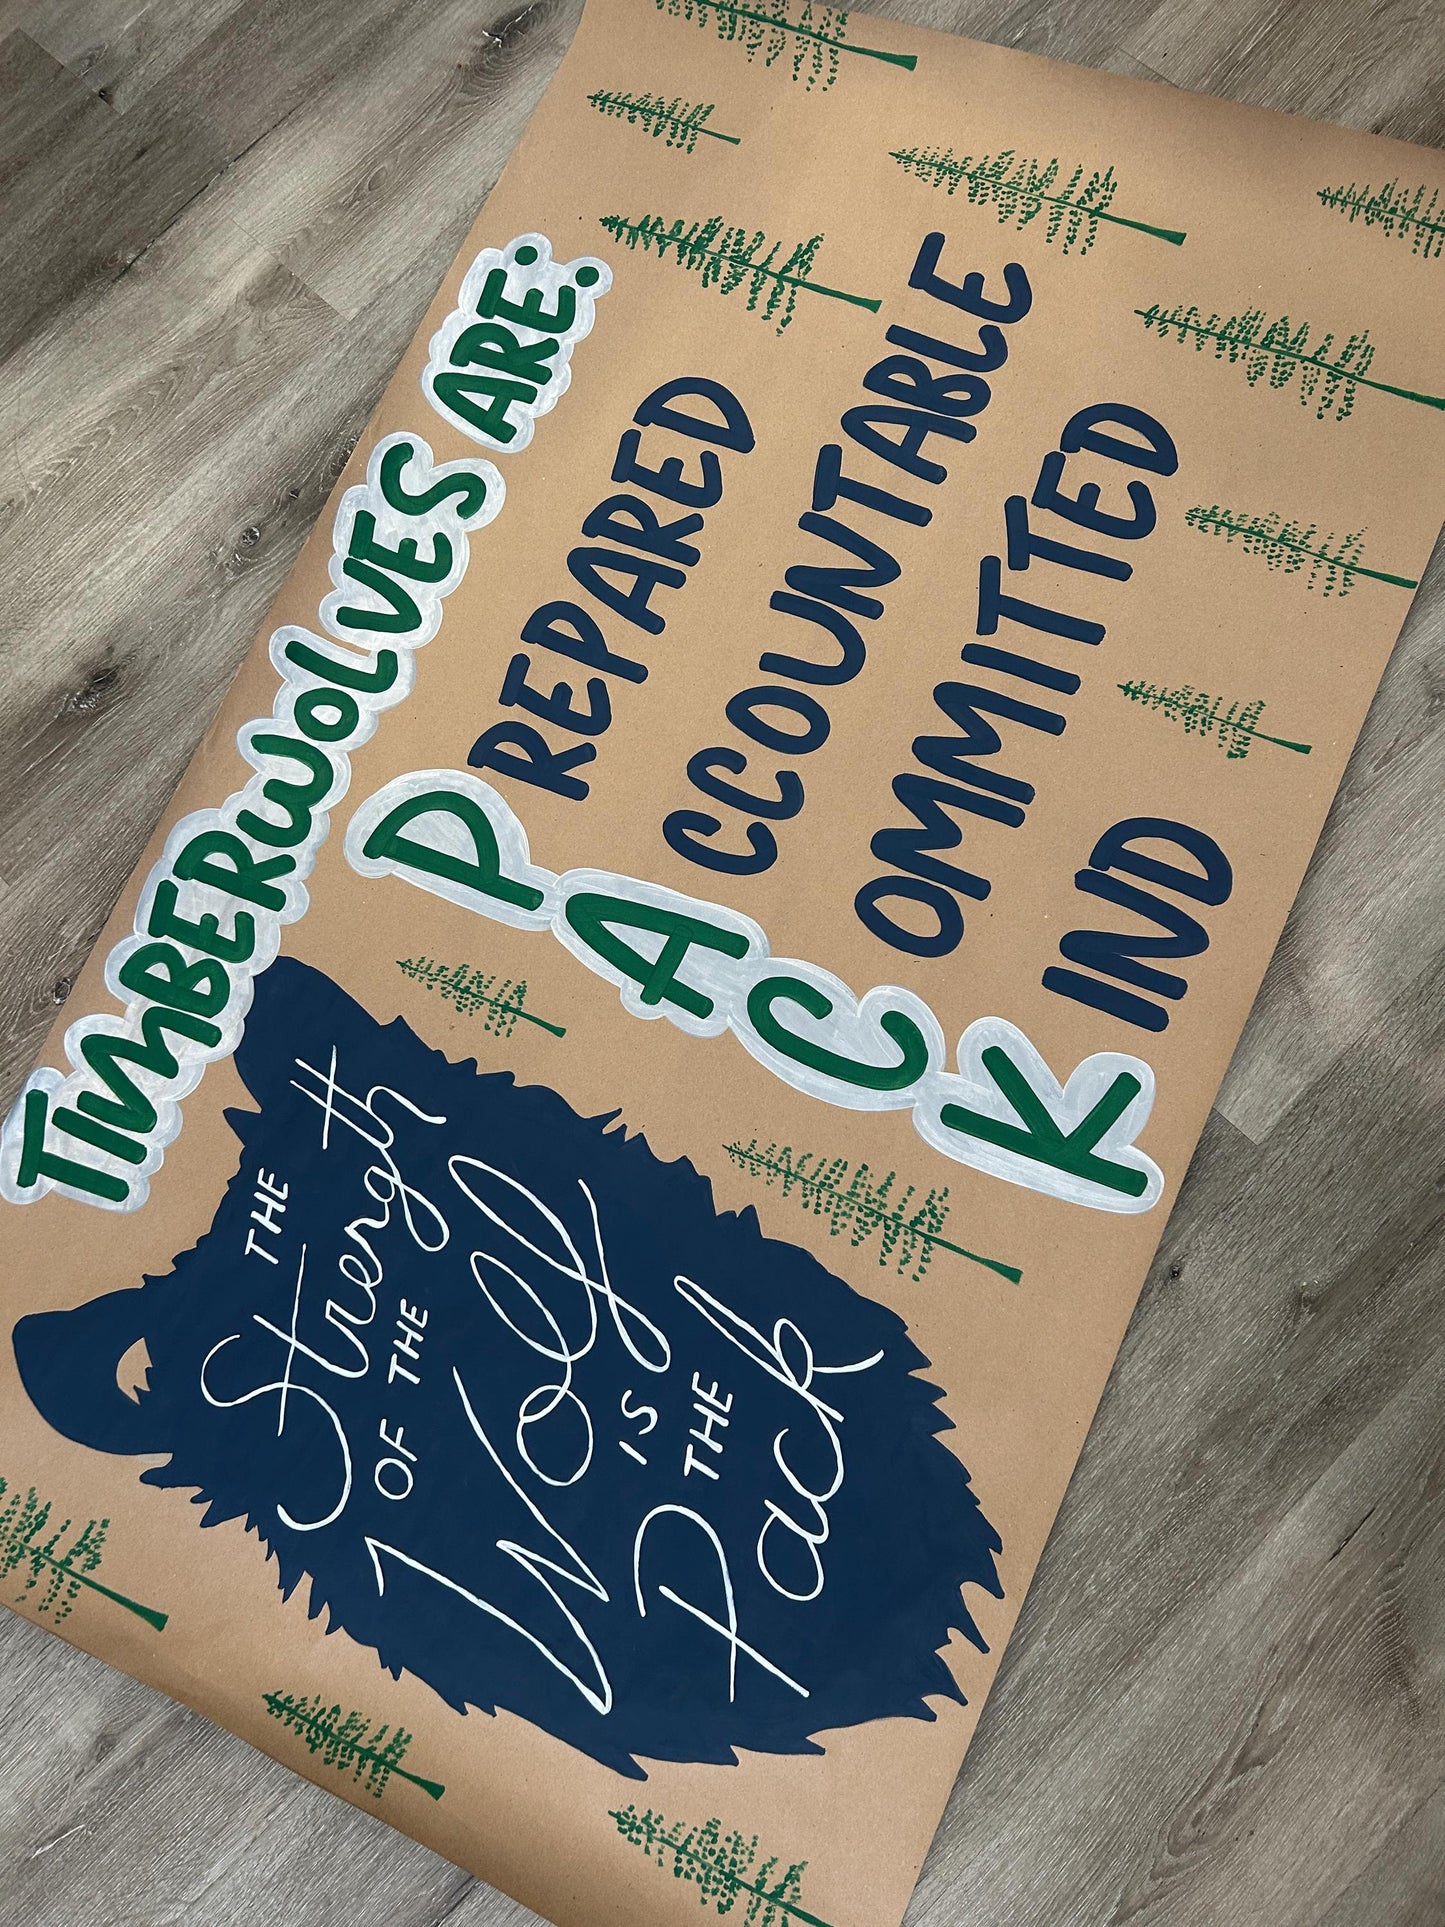 TIMBERWOLVES ARE:
PREPARED
ACCOUNTABLE
COMMITTED
KIND
THE
Strength
OF THE
Wolf
IS
THE
Pack